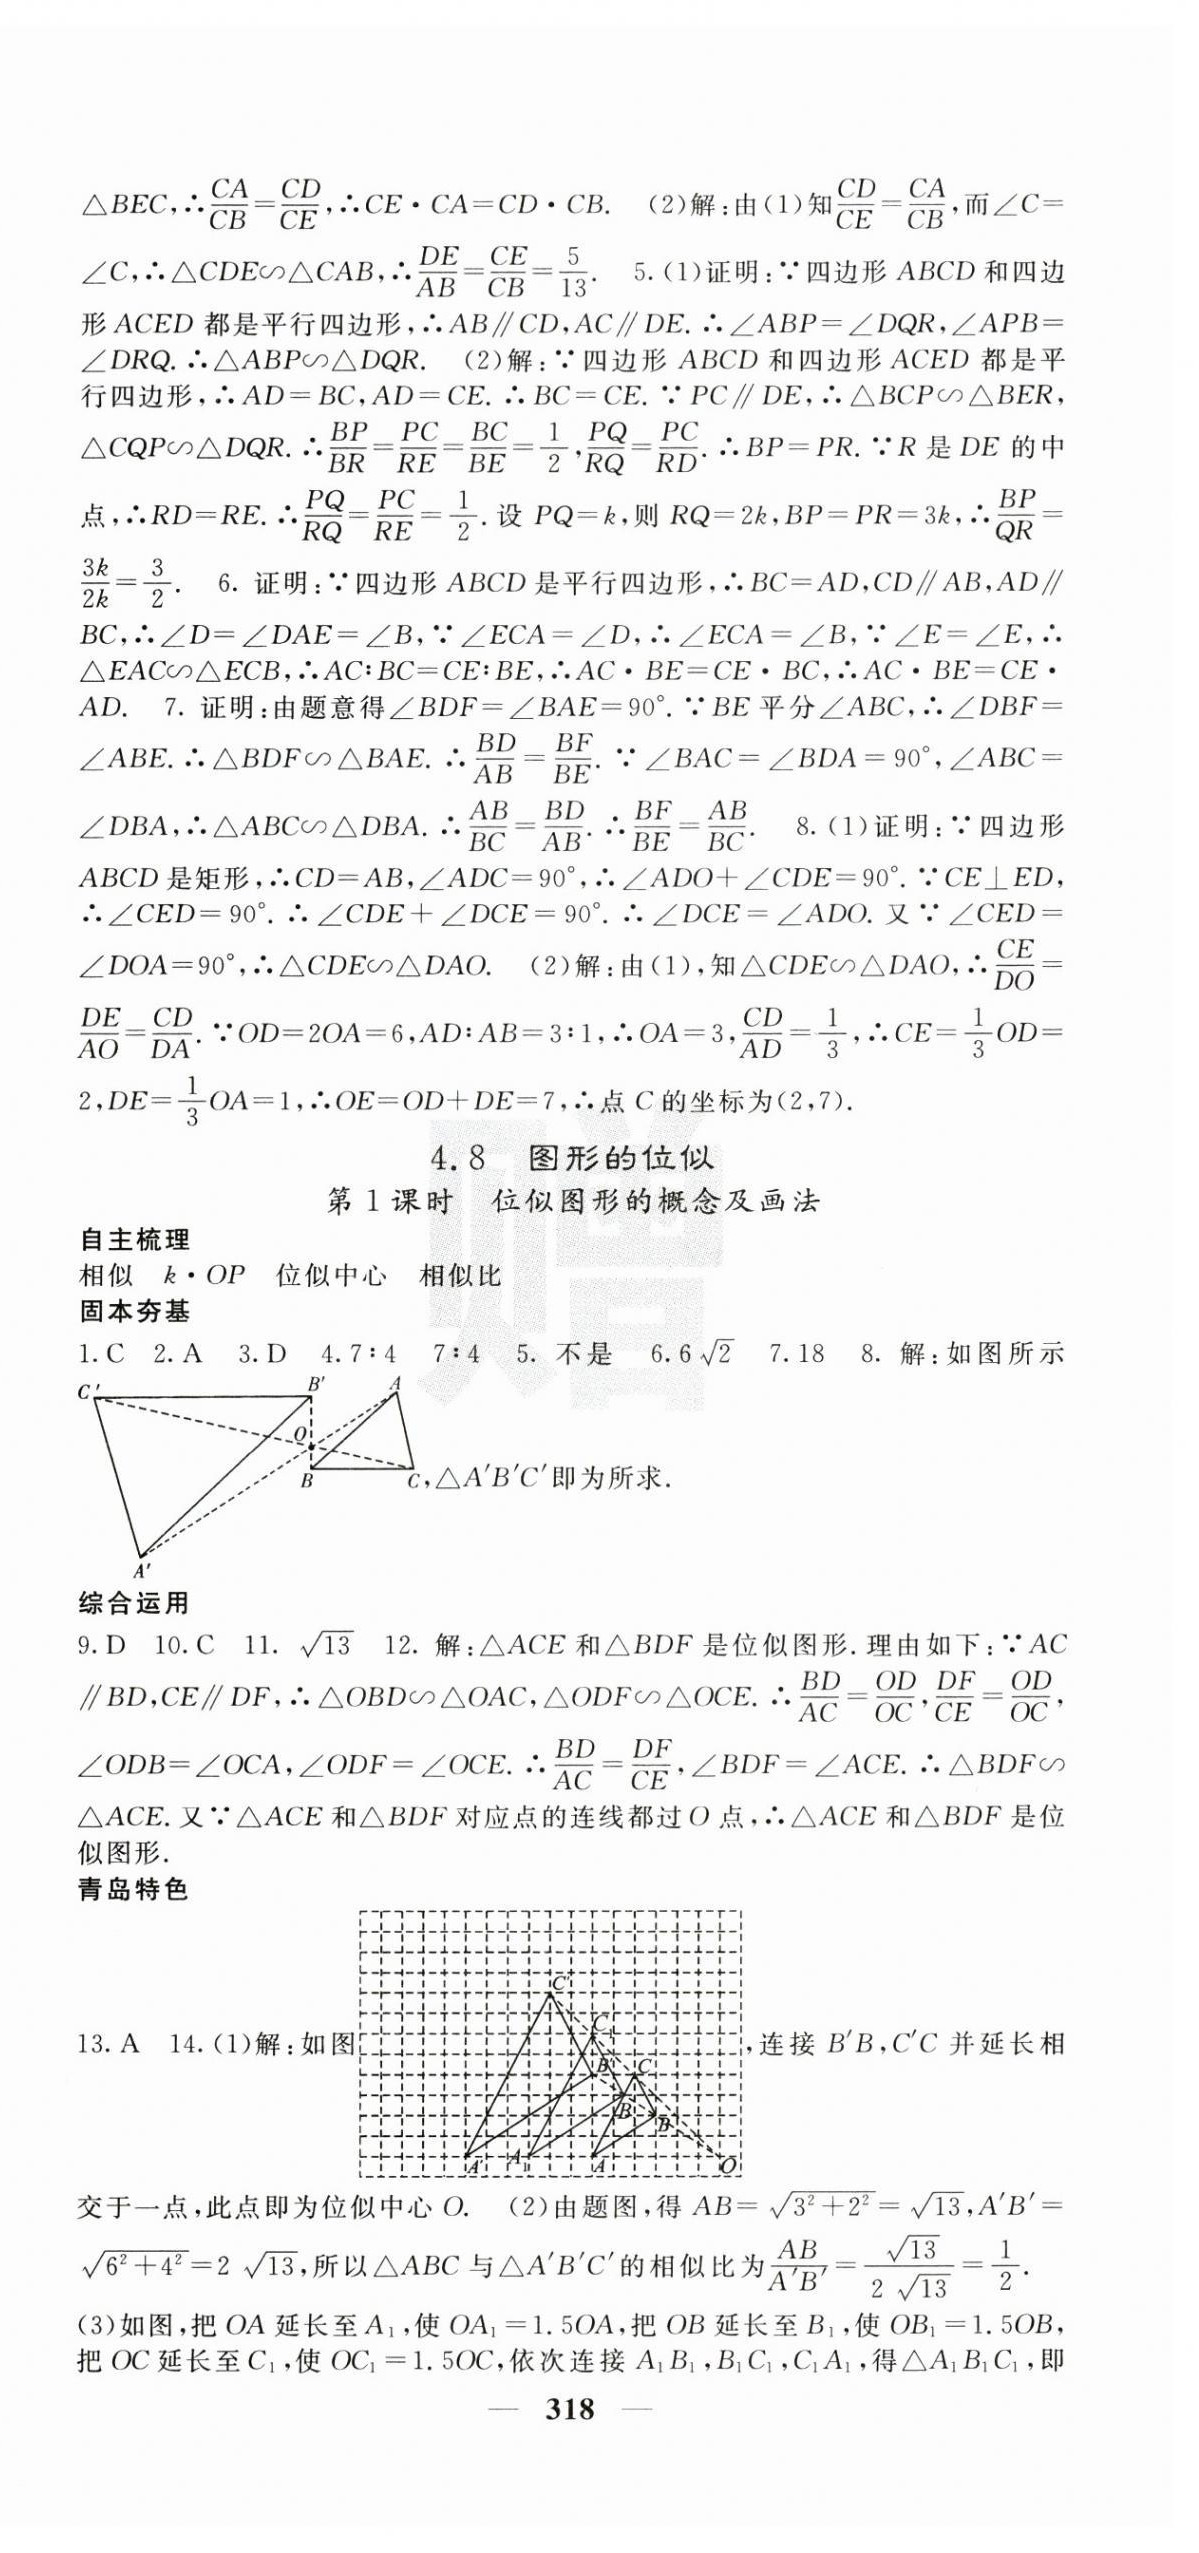 △BEC,∴CA/CB=CD/CE,∴CE·CA=CD·CB. (2)解:由(1)知CD/CE=CA/CB,而∠C=
∠C,∴△CDE∽△CAB,∴DE/AB=CE/CB=5/13. 5.(1)证明:∵四边形 ABCD 和四边
形 ACED 都是平行四边形,∴AB∥CD,AC∥DE.∴∠ABP=∠DQR,∠APB=
∠DRQ.∴△ABP∽△DQR. (2)解:∵四边形 ABCD 和四边形 ACED 都是平
行四边形,∴AD=BC,AD=CE.∴BC=CE.∵PC∥DE,∴△BCP∽△BER,
△CQP∽△DQR.∴BP/BR=PC/RE=BC/BE=1/2,PQ/RQ=PC/RD.∴BP=PR.∵R 是 DE 的中
点,∴RD=RE.∴PQ/RQ=PC/RE=1/2.设 PQ=k,则 RQ=2k,BP=PR=3k,∴BP/QR=
3k/2k=3/2. 6. 证明:∵四边形 ABCD 是平行四边形,∴BC=AD,CD∥AB,AD∥
BC,∴∠D=∠DAE=∠B,∵∠ECA=∠D,∴∠ECA=∠B,∵∠E=∠E,∴
△EAC∽△ECB,∴AC∶BC=CE∶BE,∴AC·BE=CE·BC,∴AC·BE=CE·
AD. 7. 证明:由题意得∠BDF=∠BAE=90°.∵BE 平分∠ABC,∴∠DBF=
∠ABE.∴△BDF∽△BAE.∴BD/AB=BF/BE.∵∠BAC=∠BDA=90°,∠ABC=
∠DBA,∴△ABC∽△DBA.∴AB/BC=BD/AB.∴BF/BE=AB/BC. 8.(1)证明:∵四边形
ABCD 是矩形,∴CD=AB,∠ADC=90°,∴∠ADO+∠CDE=90°.∵CE⊥ED,
∴∠CED=90°.∴∠CDE+∠DCE=90°.∴∠DCE=∠ADO.又∵∠CED=
∠DOA=90°,∴△CDE∽△DAO. (2)解:由(1),知△CDE∽△DAO,∴CE/DO=
DE/AO=CD/DA.∵OD=2OA=6,AD∶AB=3∶1,∴OA=3,CD/AD=1/3,∴CE=1/3OD=
2,DE=1/3OA=1,∴OE=OD+DE=7,∴点 C 的坐标为(2,7).
4.8 图形的位似
第 1 课时 位似图形的概念及画法
自主梳理
相似 k·OP 位似中心 相似比
固本夯基
1.C 2.A 3.D 4.7∶4 7∶4 5. 不是 6.6√2 7.18 8. 解:如图所示
C′ B′ A
O
B C,△A′B′C′即为所求.
A′
综合运用
9.D 10.C 11. √13 12. 解:△ACE 和△BDF 是位似图形.理由如下:∵AC
∥BD,CE∥DF,∴△OBD∽△OAC,△ODF∽△OCE.∴BD/AC=OD/OC,DF/CE=OD/OC,
∠ODB=∠OCA,∠ODF=∠OCE.∴BD/AC=DF/CE,∠BDF=∠ACE.∴△BDF∽
△ACE.又∵△ACE 和△BDF 对应点的连线都过 O 点,∴△ACE 和△BDF 是位
似图形.
青岛特色
C′
C₁
13.A 14.(1)解:如图 B′ C ,连接 B′B,C′C 并延长相
B₁ B
A′ A₁ A O
交于一点,此点即为位似中心 O. (2)由题图,得 AB=√(3²+2²)=√13,A′B′=
√(6²+4²)=2√13,所以△ABC 与△A′B′C′的相似比为AB/A′B′=√13/2√13=1/2.
(3)如图,把 OA 延长至 A₁,使 OA₁=1.5OA,把 OB 延长至 B₁,使 OB₁=1.5OB,
把 OC 延长至 C₁,使 OC₁=1.5OC,依次连接 A₁B₁,B₁C₁,C₁A₁,得△A₁B₁C₁,即
— 318 —
赠